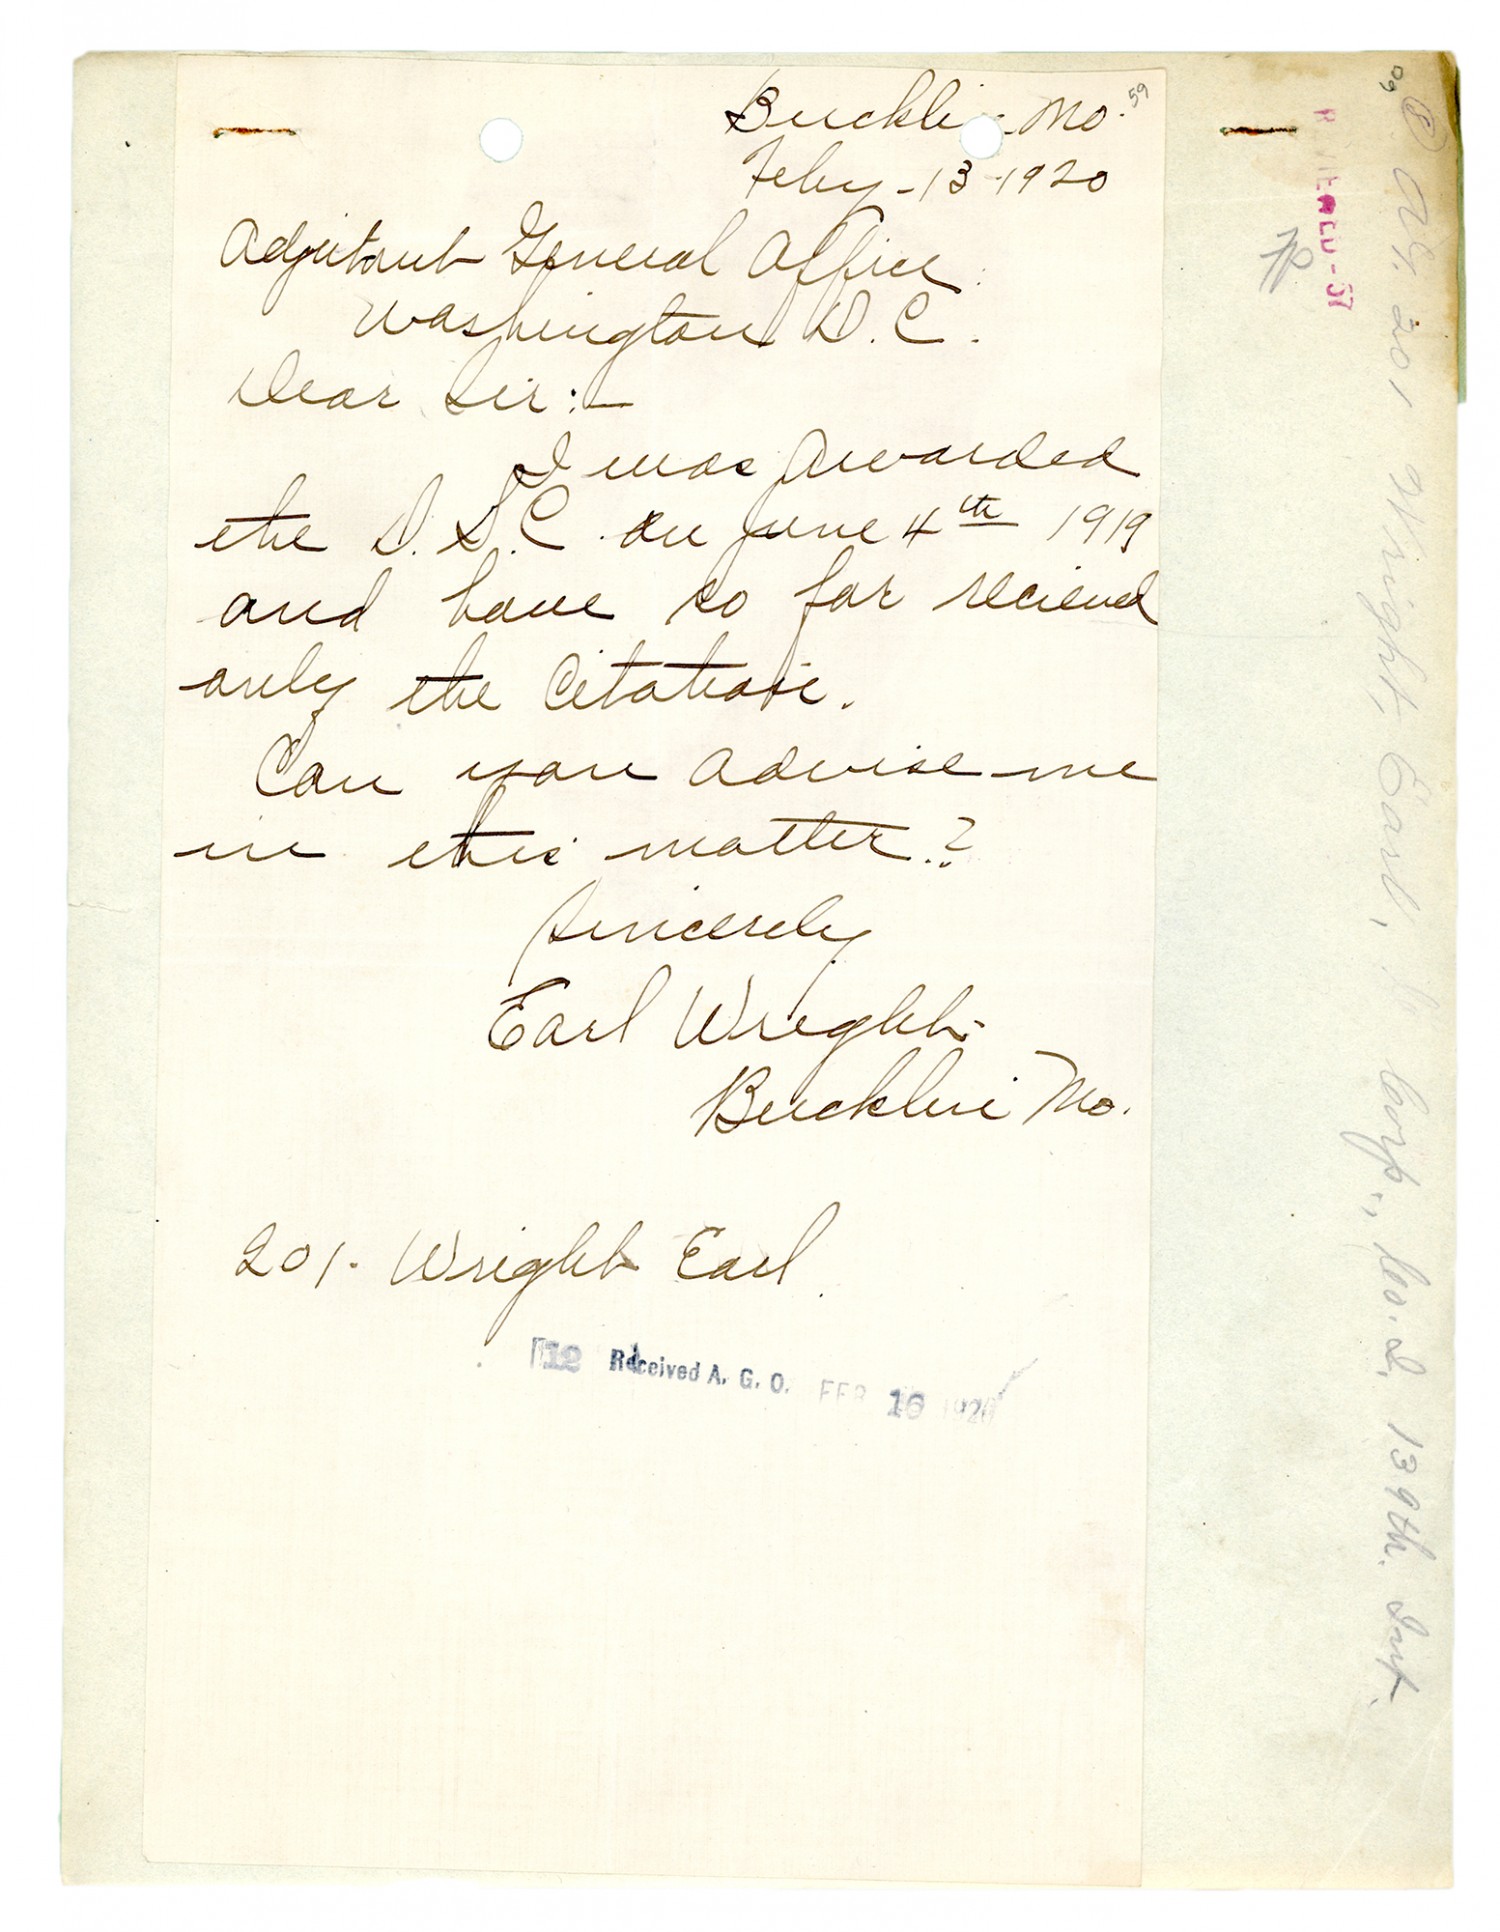 59
Bucklin Mo.
Feby-13-1920
Adjutant General Office
Washington D.C.
Dear Sir:-
I was Awarded
the D.S.C. on June 4th 1919
and have so far recieved
only the Citation.
Can you advise me
in this matter?
Sincerely
Earl Wright
Bucklin Mo.
201. Wright Earl
12 Received A. G. O. FEB 16 1920
REVIEWED-57
201 Wright, Earl, Corp., Co. D, 139th. Inf.